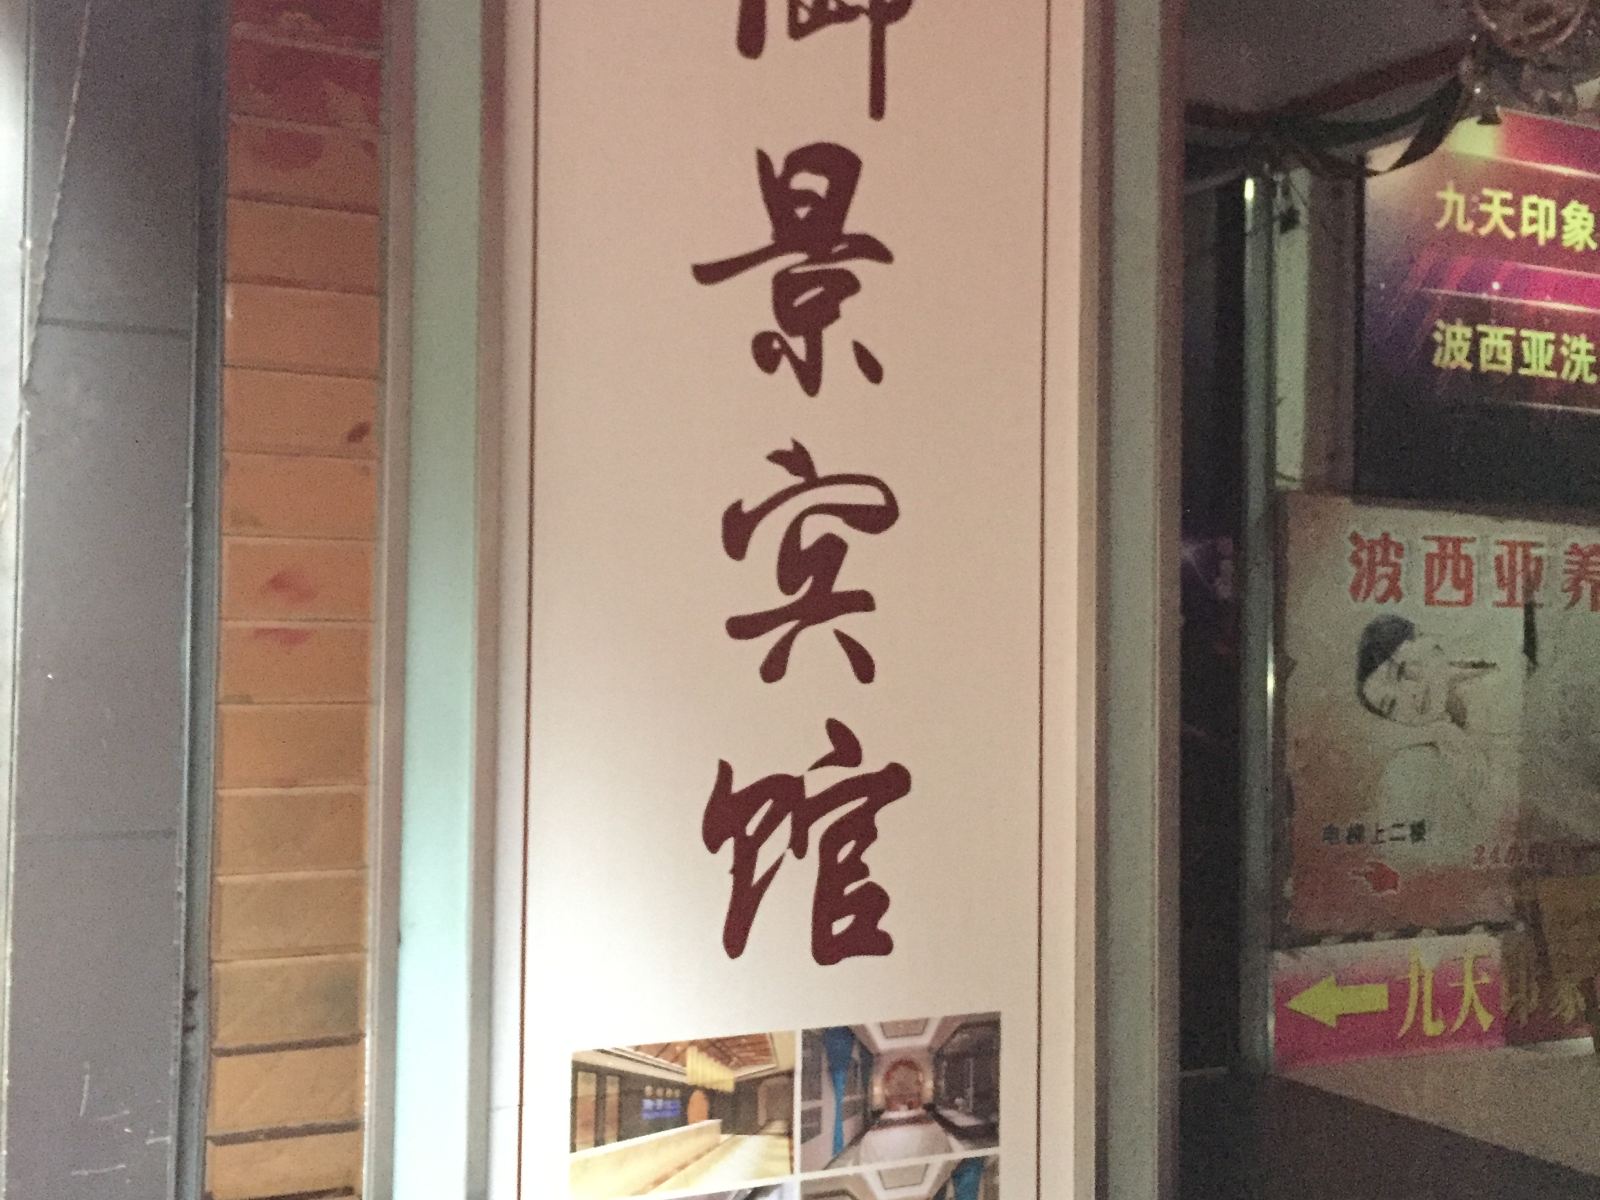 御景宾馆
九天印象
波西亚洗
波西亚养
电梯上二楼
九天印象